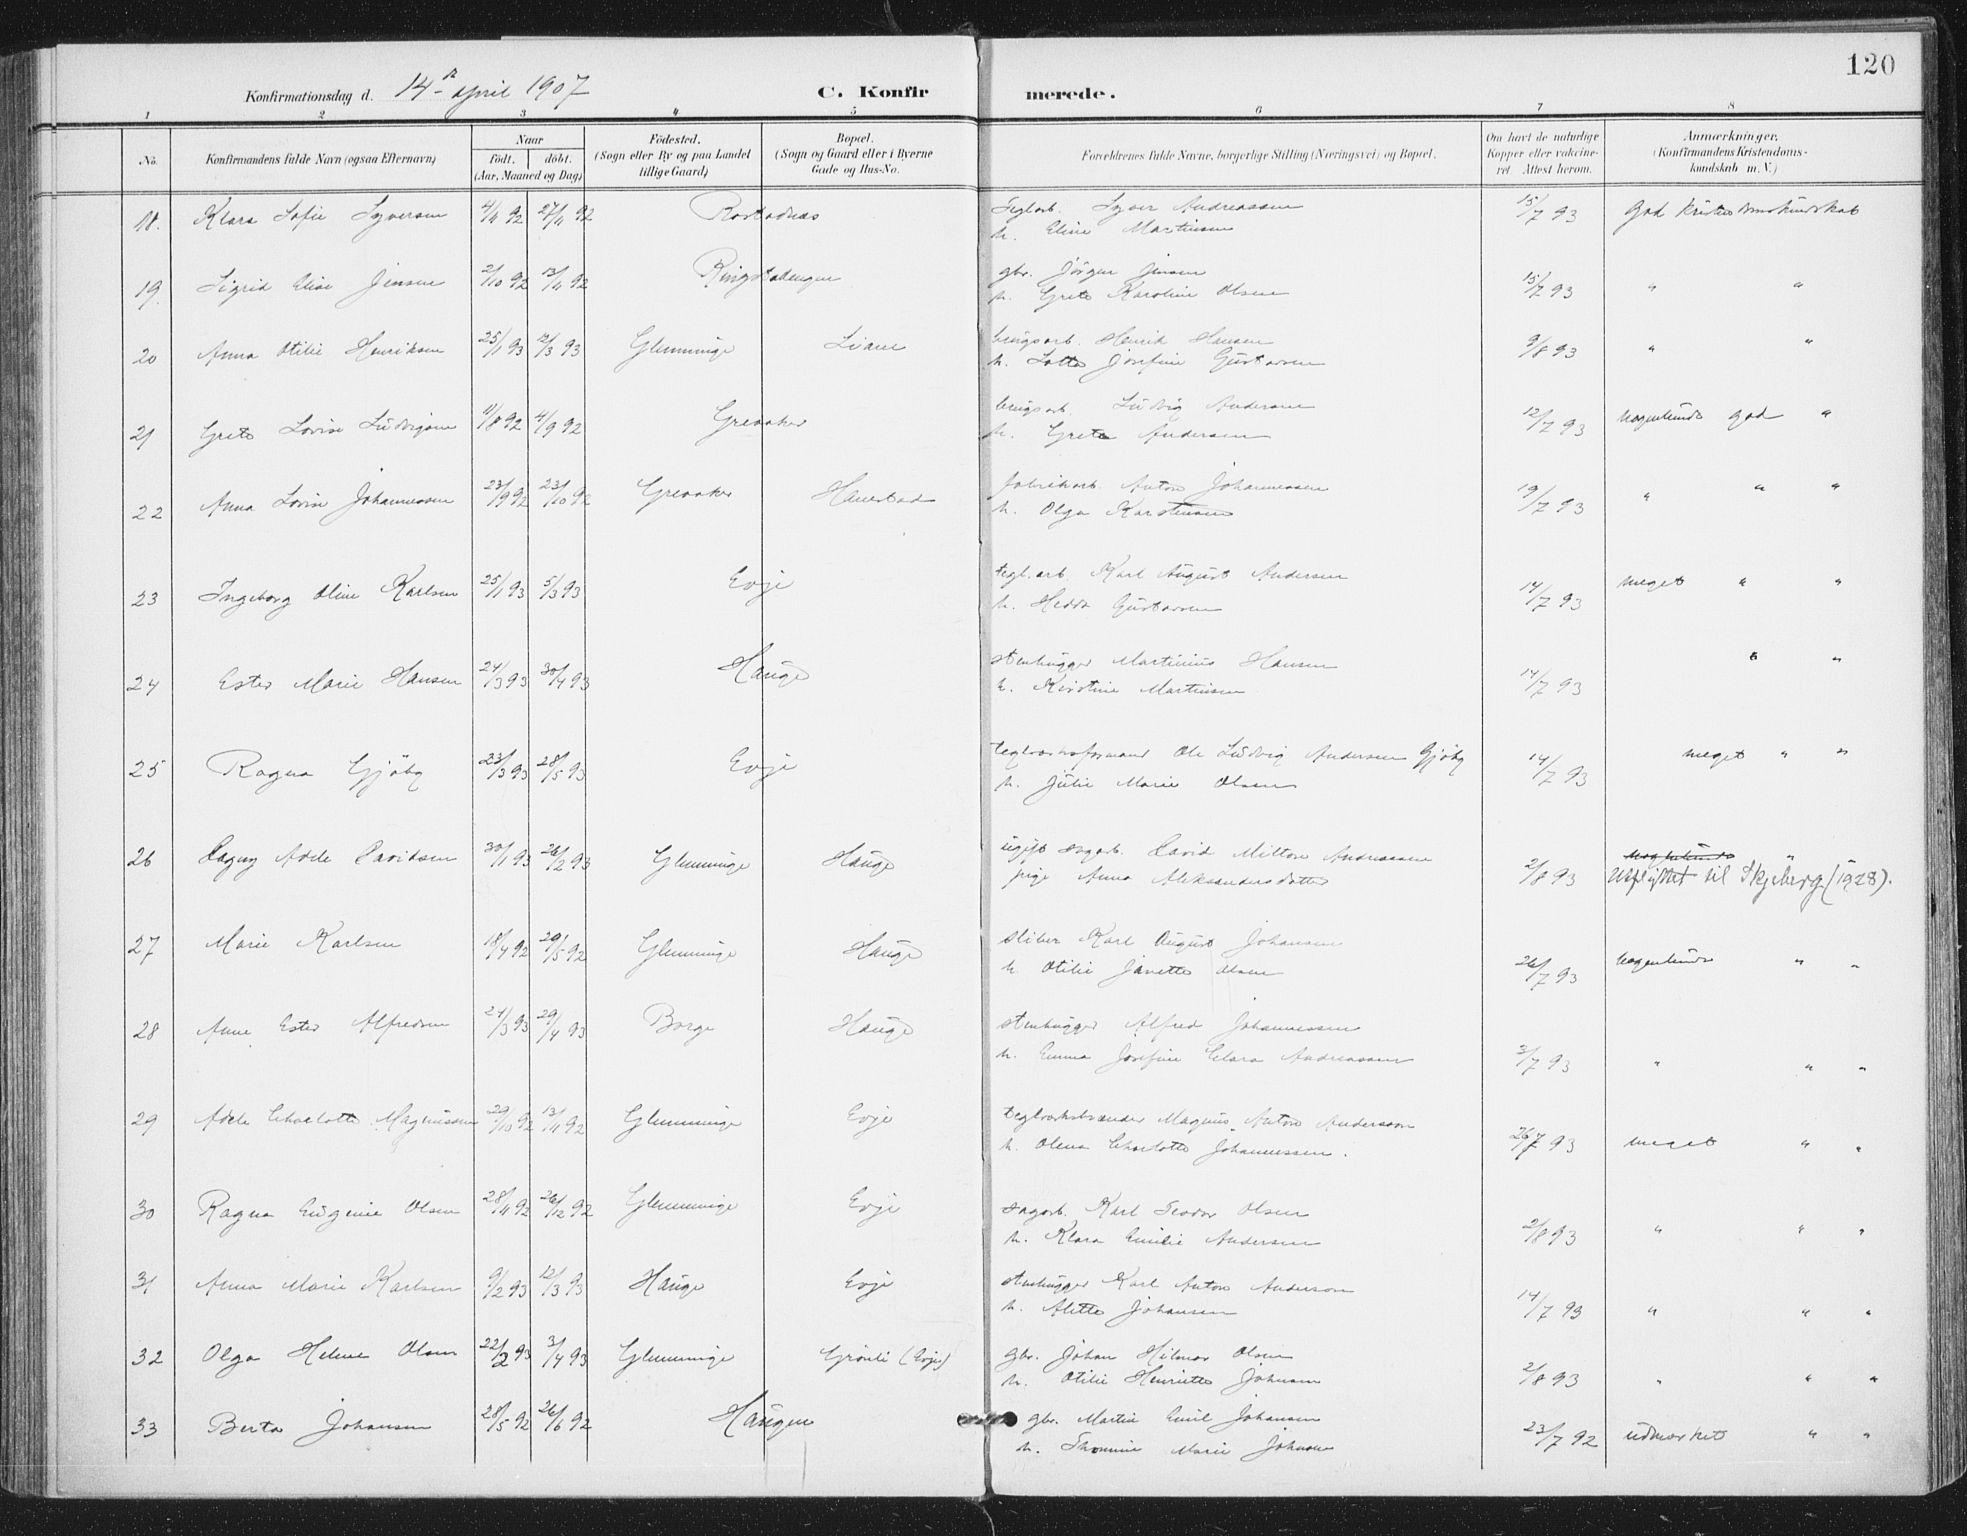 120
Konfirmationsdag d. 14 april 1907 C. Konfirmerede.
1 2 3 4 5 6 7 8
No. Konfirmandens fulde Navn (ogsaa Efternavn) Naar født. døbt. (Aar, Maaned og Dag) Födested. (Sogn eller By og paa Landet tillige Gaard) Bopæl. (Sogn og Gaard eller i Byerne Gade og Hus-No. Forældrenes fulde Navne, borgerlige Stilling (Næringsvei) og Bopæl. Om havt de naturlige Kopper eller vakcineret. Attest herom. Anmærkninger. (Konfirmandens Kristendomskundskab m. V.)
18. Klara Sofie Syversen 4/11 92 27/11 92 Rostadnæs Teglarb. Syver Andreassen 15/7 93 God Kristendomskundskab
h. Eline Martinsen
19. Sigrid Elise Jensen 2/10 92 13/11 92 Ringstadengen gbr. Jörgen Jensen 15/7 93 " "
h. Grete Karoline Olsen
20 Anna Otilie Henriksen 25/1 93 12/3 93 Glemminge Liane brugsarb. Henrik Hansen 9/8 93 " "
h. Lotte Josefine Gustavsen
21 Grete Lovise Ludvigsen 11/8 92 4/9 92 Greaaker brugsarb. Ludvig Andersen 12/7 93 nogenlunde god "
h. Grete Andersen
22 Anna Lovise Johannessen 23/9 92 23/10 92 Greaaker Hanestad fabrikarb. Anton Johannessen 19/7 93 " " "
h. Olga Karstensen
23 Ingeborg Oline Karlsen 25/1 93 5/3 93 Evje tegl.arb. Karl August Andersen 14/7 93 meget " "
h. Hedda Gustavsen
24 Ester Marie Hansen 24/3 93 30/4 93 Hauge stenhugger Martinius Hansen 14/7 93 " "
h. Kristine Martinsen
25 Ragna Gjöby 23/3 93 28/5 93 Evje teglverksformand Ole Ludvig Andersen Gjöby 14/7 93 meget " "
h. Julie Marie Olsen
26 Dagny Adele Davidsen 30/1 93 26/2 93 Glemminge Hauge ugift sagarb. David Milton Andreassen 2/8 93 nogenlunde "
pige Anna Aleksandersdatter Utflyttet til Skjeberg (1928).
27 Marie Karlsen 18/4 92 29/5 92 Glemminge Hauge sliber Karl August Johansen 26/7 93 nogenlunde " "
h. Otilie Janette Olsen
28 Anne Ester Alfredsen 24/3 93 29/4 93 Borge Hauge stenhugger Alfred Johannessen 3/7 93 " " "
h. Emma Josefine Clara Andreassen
29 Adele Charlotte Magnussen 29/10 92 13/11 92 Glemminge Evje teglverksbrænder Magnus Anton Anderson 26/7 93 meget " "
h. Olena Charlotte Johannessen.
30 Ragna Eugenie Olsen 28/11 92 26/12 92 Glemminge Evje sagarb. Karl Teodor Olsen 2/8 93 " " "
h. Klara Emilie Andersen
31 Anna Marie Karlsen 9/2 93 12/3 93 Hauge Evje stenhugger Karl Anton Anderson 14/7 93 " " "
h. Alette Johansen
32 Olga Helene Olsen 22/2 93 3/4 93 Glemminge Grönli (Evje) gbr. Johan Hilmar Olsen 2/8 93 " " "
h. Otilie Henriette Johnsen
33 Berta Johansen 28/5 92 26/6 92 Haugen gbr. Martin Emil Johansen 23/7 92 udmerket " "
h. Thomine Marie Johnsen